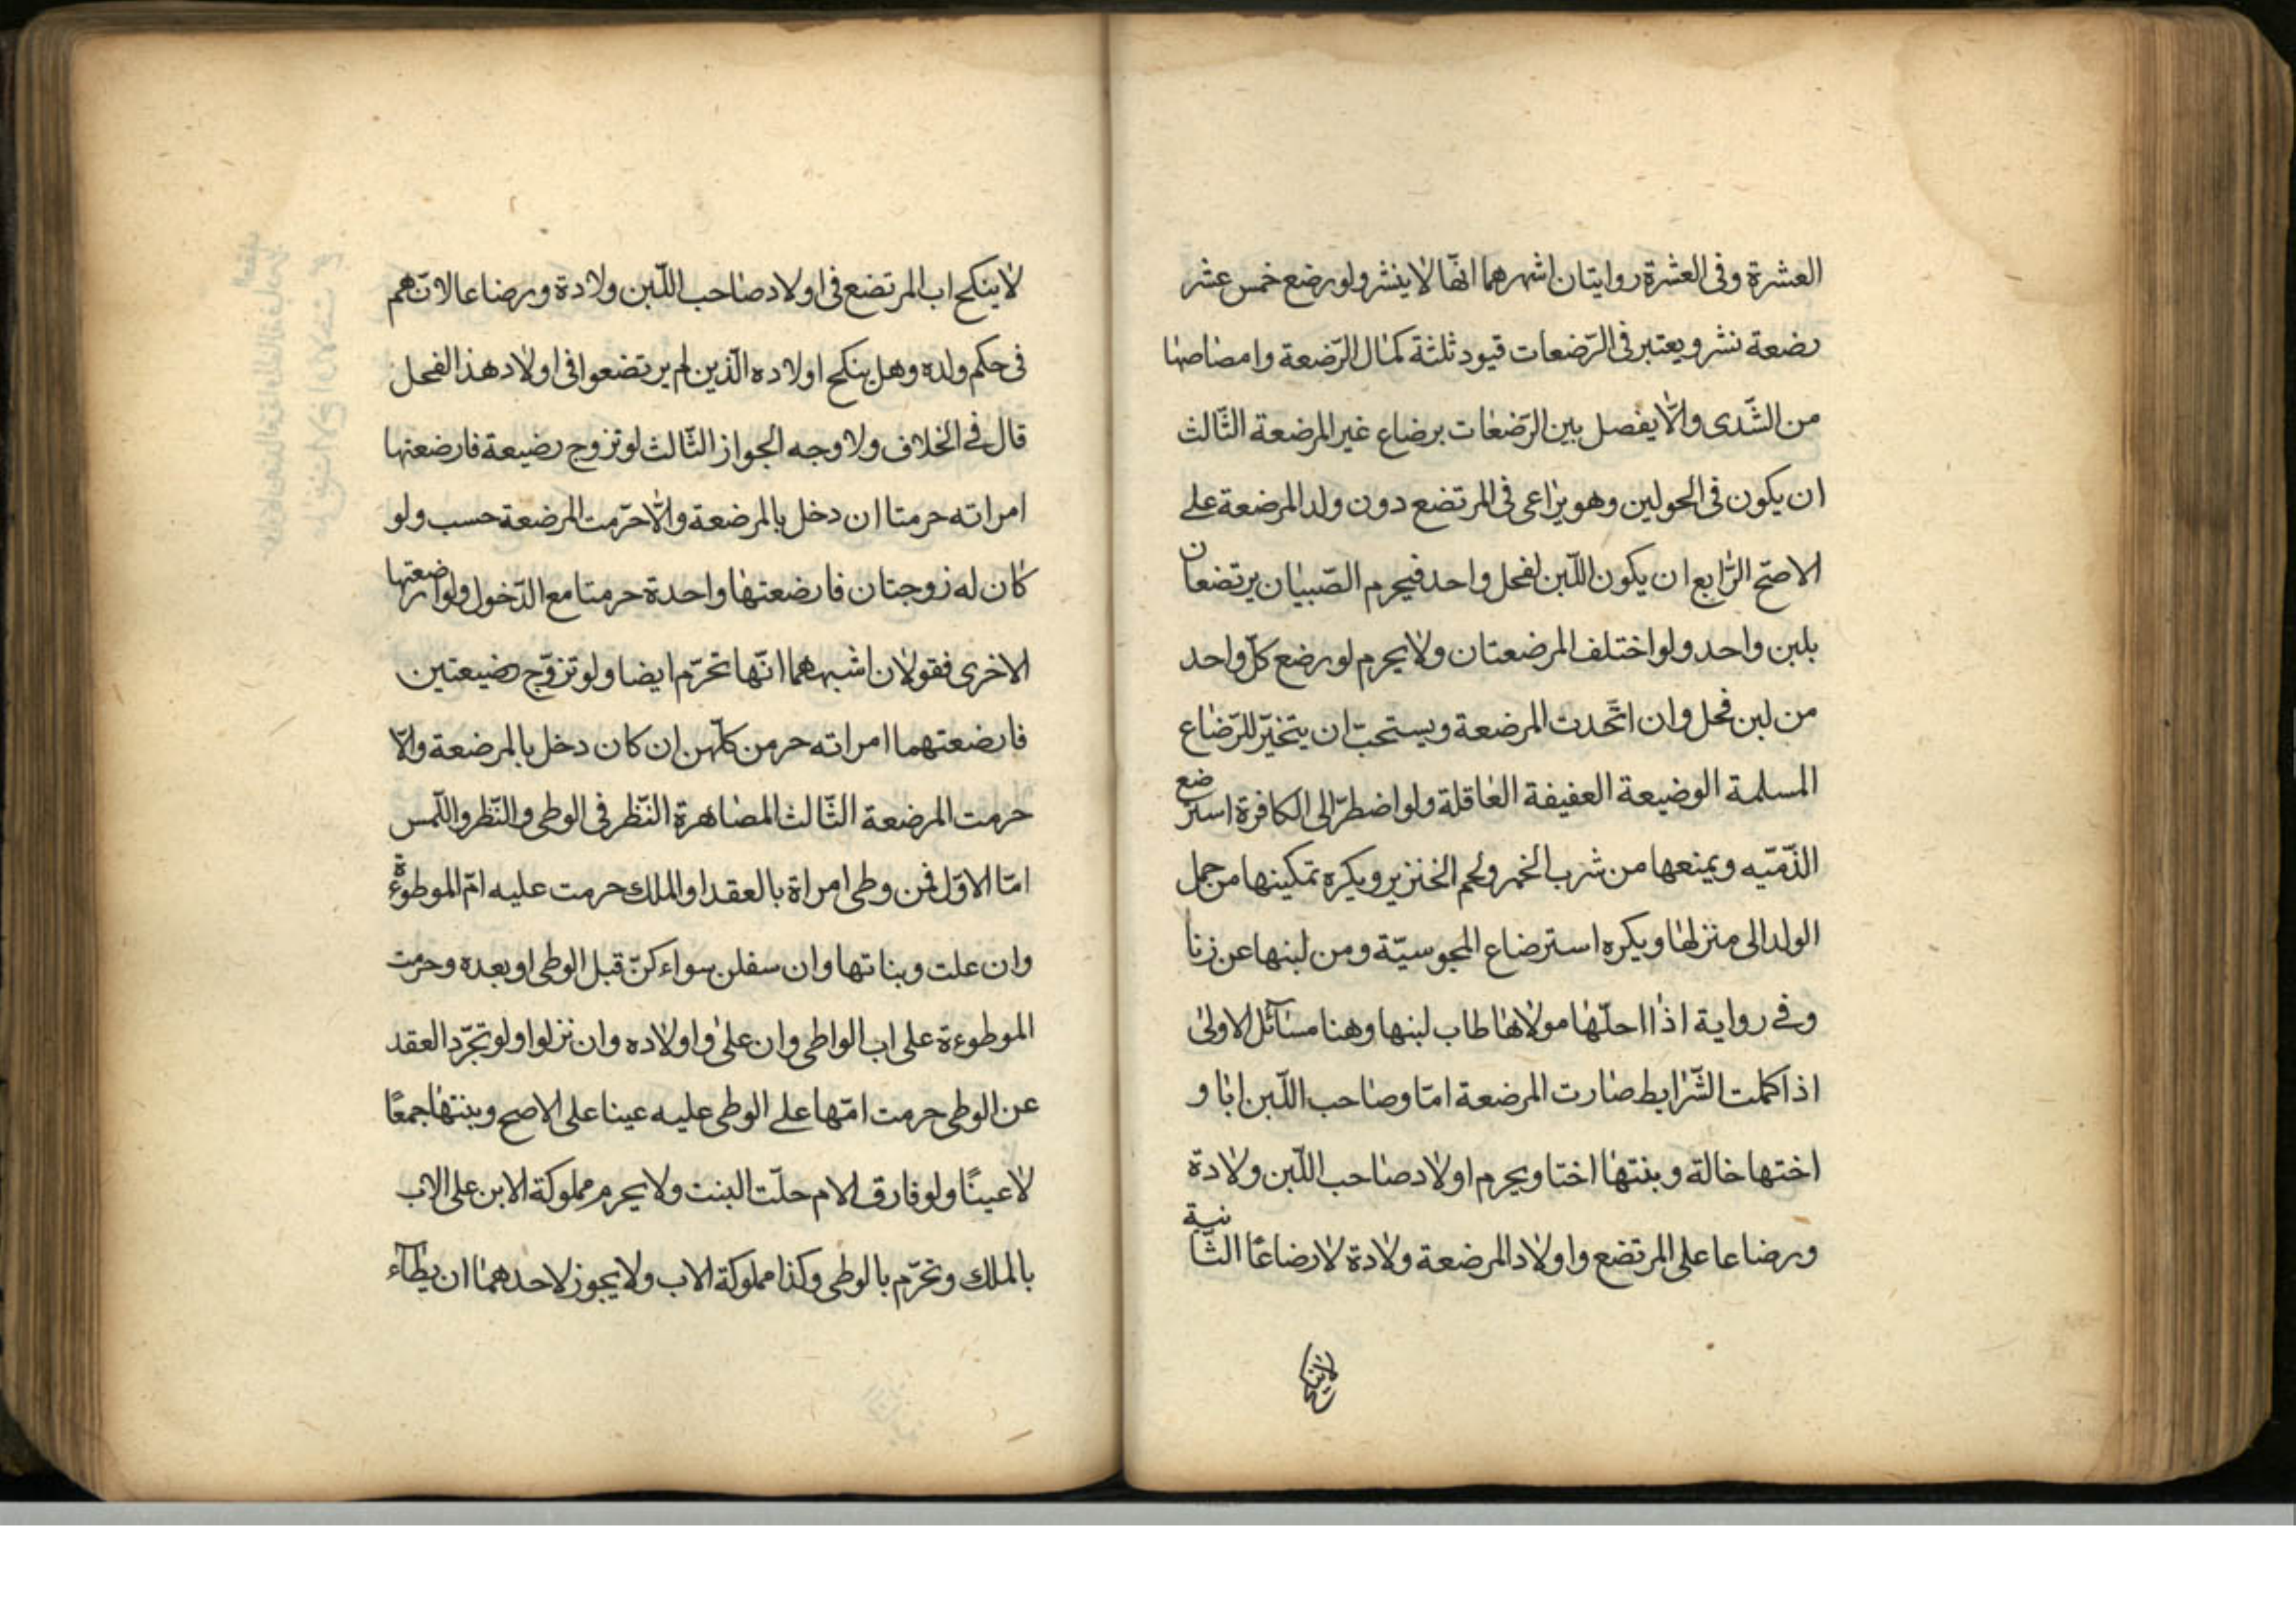 العشرة وفى العشرة روايتان اشهرهما انّها لا ينشر ولو رضع خمس عشر
رضعة نشر ويعتبر فى الرّضعات قيود ثلثة كمال الرّضعة وامصاصها
من الثّدى والّا يفصل بين الرّضعات برضاع غير المرضعة الثّالث
ان يكون فى الحولين وهو يراعى فى المرتضع دون ولد المرضعة على
الاصحّ الرّابع ان يكون اللّبن لفحل واحد فيحرم الصّبيان يرتضعان
بلبن واحد ولو اختلف المرضعتان ولا يحرم لو رضع كلّ واحد
من لبن فحل وان اتّحدت المرضعة ويستحبّ ان يتخيّر للرّضاع
المسلمة الوضيعة العفيفة العاقلة ولو اضطرّ الى الكافرة استرضع
الذّمّيه ويمنعها من شرب الخمر ولحم الخنزير ويكره تمكينها من حمل
الولد الى منزلها ويكره استرضاع المجوسيّة ومن لبنها عن زنا
وفى رواية اذا احلّها مولاها طاب لبنها وهنا مسائل الاولى
اذا كملت الشّرايط صارت المرضعة امّا وصاحب اللّبن ابا و
اختها خالة وبنتها اختا ويحرم اولاد صاحب اللّبن ولادة
ورضاعا على المرتضع واولاد المرضعة ولادة لا رضاعًا الثّانية
لا ينكح اب المرتضع فى اولاد صاحب اللّبن ولادة ورضاعا لانّهم
فى حكم ولده وهل ينكح اولاده الّذين لم يرتضعوا فى اولاد هذا الفحل
قال فى الخلاف ولا وجه الجواز الثّالث لو تزوج رضيعة فارضعتها
امراته حرمتا ان دخل بالمرضعة والّا حرّمت المرضعة حسب ولو
كان له زوجتان فارضعتها واحدة حرمتا مع الدّخول ولو ارضعتها
الاخرى فقولان اشبههما انّها تحرّم ايضا ولو تزوّج رضيعتين
فارضعتهما امراته حرمن كلّهن ان كان دخل بالمرضعة والّا
حرمت المرضعة الثّالث المصاهرة النّظر فى الوطى والنّظر واللّمس
امّا الاوّل فمن وطى امراة بالعقد او الملك حرمت عليه امّ الموطوءة
وان علت وبناتها وان سفلن سواء كنّ قبل الوطى او بعده وحرمت
الموطوءة على اب الواطى وان على واولاده وان نزلوا ولو تجرّد العقد
عن الوطى حرمت امّها على الوطى عليه عينا على الاصح وبنتها جمعًا
لا عينًا ولو فارق الام حلّت البنت ولا يحرم مملوكة الابن على الاب
بالملك وتحرّم بالوطى وكذا مملوكة الاب ولا يجوز لاحدهما ان يطاء